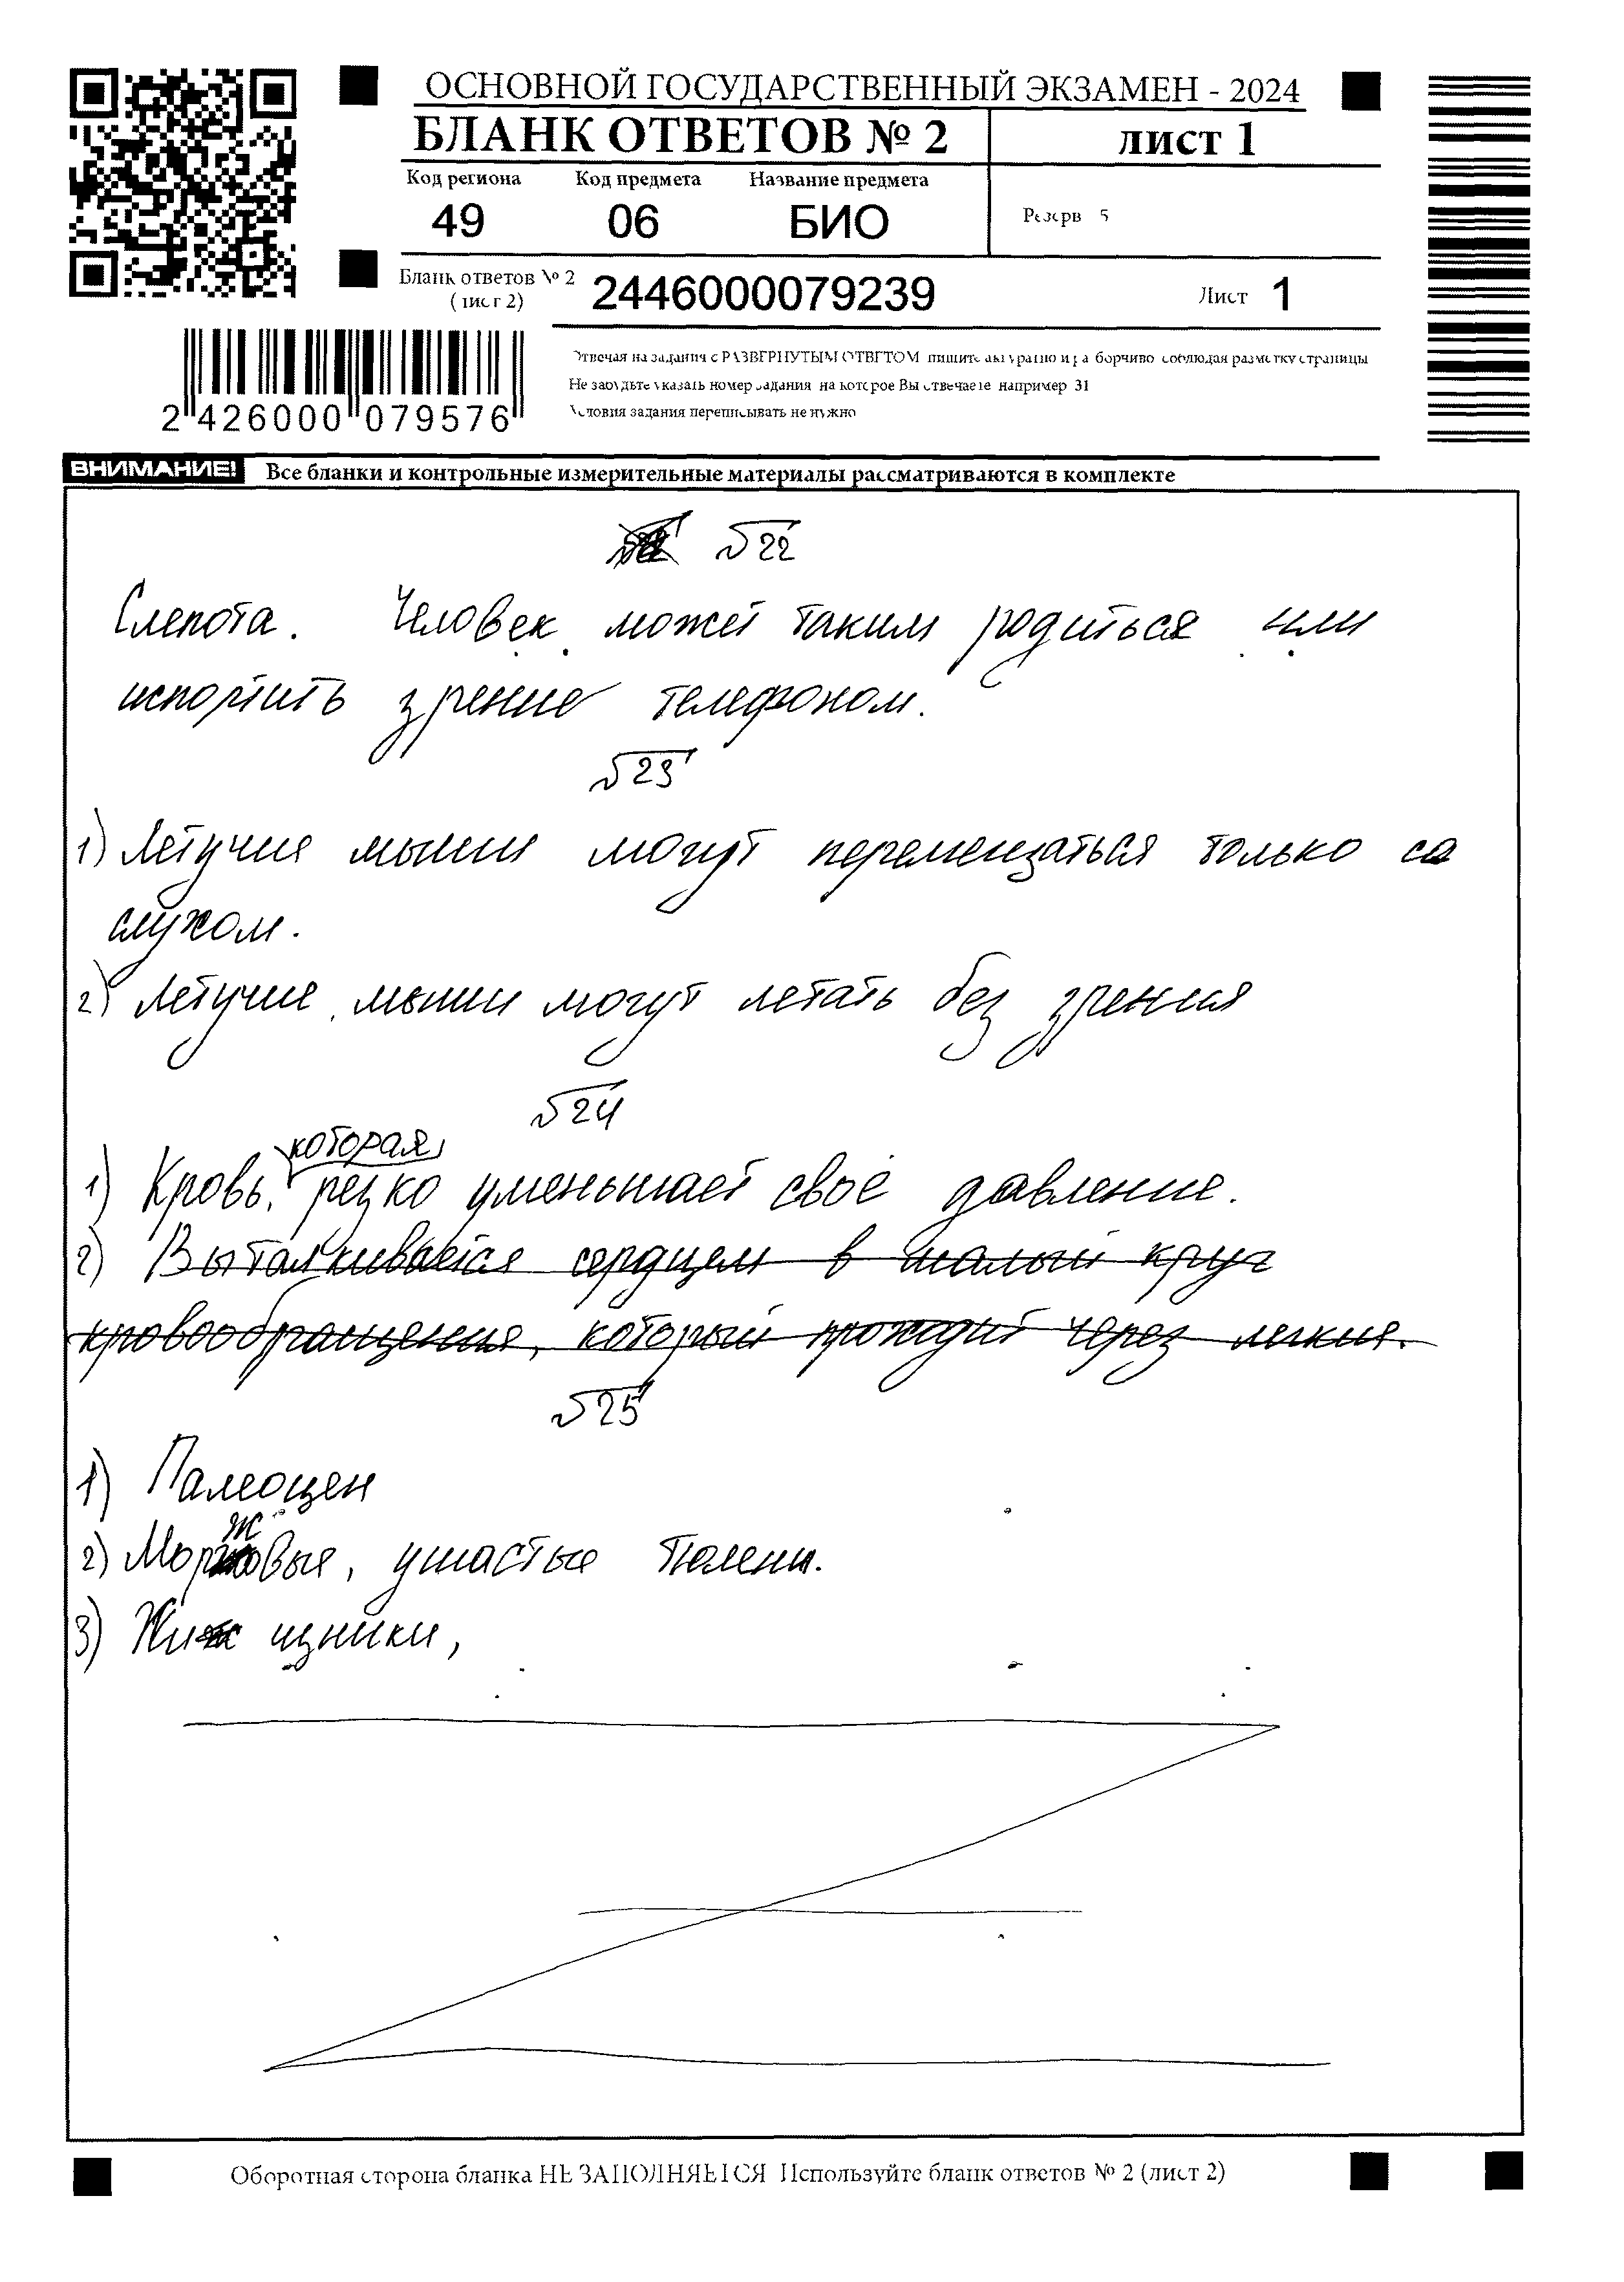 ОСНОВНОЙ ГОСУДАРСТВЕННЫЙ ЭКЗАМЕН - 2024
БЛАНК ОТВЕТОВ № 2
лист 1
Код региона Код предмета Название предмета
49 06 БИО
Резерв 5
Бланк ответов № 2
(лист 2)
2446000079239
Лист 1
2 426000 079576
Отвечая на задания с РАЗВЕРНУТЫМ ОТВЕТОМ пишите аккуратно и разборчиво соблюдая разметку страницы
Не забудьте указать номер задания на которое Вы отвечаете например 31
Условия задания переписывать не нужно
ВНИМАНИЕ! Все бланки и контрольные измерительные материалы рассматриваются в комплекте
№22
Слепота. Человек может таким родиться или
испортить зрение телефоном.
№23
1) Летучие мыши могут перемещаться только со
слухом.
2) Летучие мыши могут летать без зрения
№24
которая
1) Кровь, резко уменьшает своё давление.
2) Выталкивается сердцем в малый круг
кровообращения, который проходит через легкия.
№25
1) Палеоцен
2) Моржовые, ушастые тюлени.
3) Хищники,
Оборотная сторона бланка НЕ ЗАПОЛНЯЕТСЯ Используйте бланк ответов № 2 (лист 2)